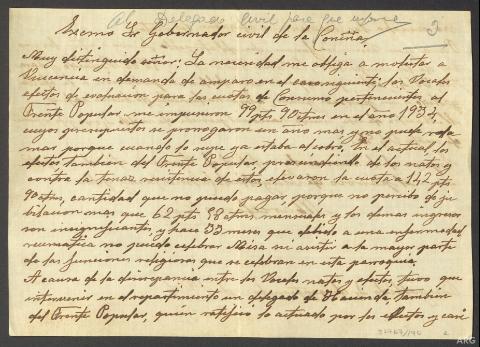 Al Delegado Civil para que informe
3
Excmo Sr Gobernador civil de la Coruña
Muy distinguido señor: La necesidad me obliga a molestar a
Vuecencia en demanda de amparo en el caso siguiente: los Vocales
efectos de evaluacion para las cuotas de Consumo pertenecientes al
Frente Popular, me impusieron 99 pts 90 ctms en el año 1934,
cuyos presupuestos se prorrogaron un año mas y no pude recla
mar porque cuando lo supe ya estaba al cobro. En el actual los
efectos tambien del Frente Popular, prescindiendo de los natos y
contra la tenaz resistencia de éstos, elevaron la cuota a 142 pts
90 ctms, cantidad que no puedo pagar porque no percibo de ju
bilacion mas que 62 pts 58 ctms mensuales y los demas ingresos
son insignificantes, y hace 33 meses que debido a una enfermedad
reumatica no puedo celebrar Misa ni asistir a la mayor parte
de las funciones religiosas que se celebran en esta parroquia.
A causa de la discrepancia entre los Vocales natos y efectos, tuvo que
intervenir en el repartimiento un delegado de Hacienda, tambien
del Frente Popular, quien ratifico lo actuado por los efectos y casi
ARG